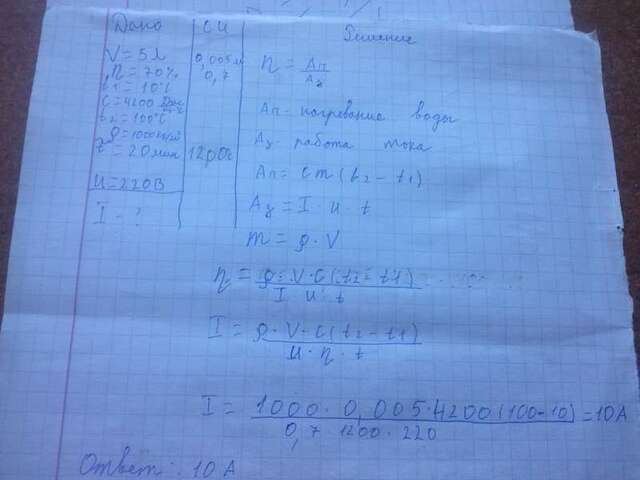 Дано СИ Решение
V = 5 л 0,005 м
η = 70% 0,7
t1 = 10°C
C = 4200
t2 = 100°C
ρ = 1000
t = 20 мин 1200 с
u = 220 В
I - ?
η = Aп / Aз
Aп - нагревание воды
Aз - работа тока
Aп = cm(t2 - t1)
Aз = I · u · t
m = ρ · V
η = ρ · V · C (t2 - t1) / I · u · t
I = ρ · V · C (t2 - t1) / u · η · t
I = 1000 · 0,005 · 4200 (100-10) / 0,7 · 1200 · 220 = 10 А
Ответ: 10 А